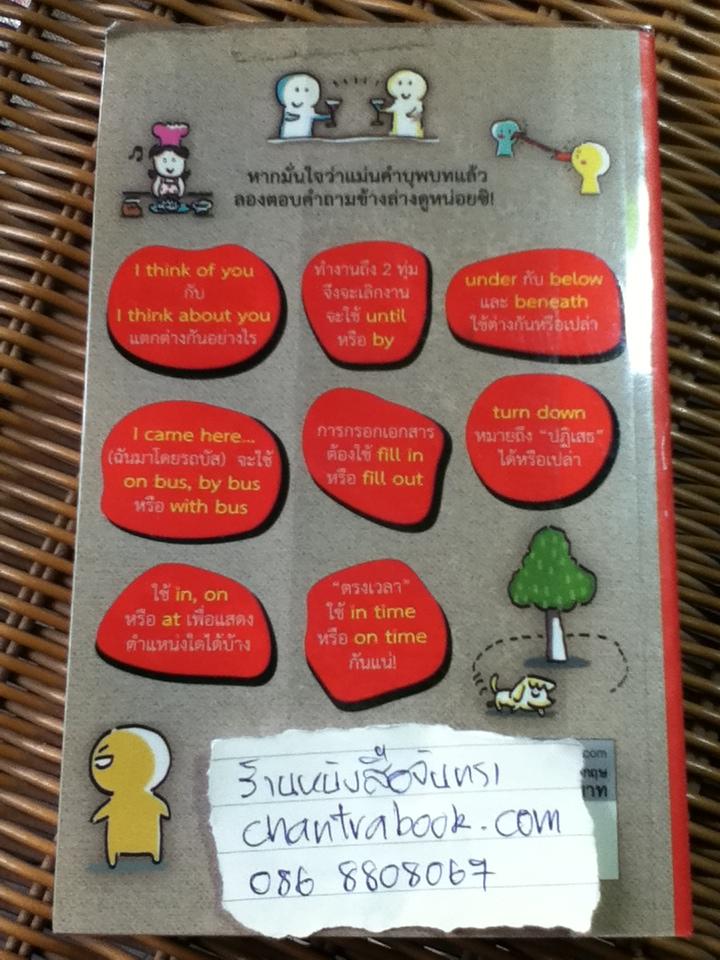 หากมั่นใจว่าแม่นคำบุพบทแล้ว
ลองตอบคำถามข้างล่างดูหน่อยซิ!
I think of you
กับ
I think about you
แตกต่างกันอย่างไร
ทำงานถึง 2 ทุ่ม
จึงจะเลิกงาน
จะใช้ until
หรือ by
under กับ below
และ beneath
ใช้ต่างกันหรือเปล่า
I came here...
(ฉันมาโดยรถบัส) จะใช้
on bus, by bus
หรือ with bus
การกรอกเอกสาร
ต้องใช้ fill in
หรือ fill out
turn down
หมายถึง "ปฏิเสธ"
ได้หรือเปล่า
ใช้ in, on
หรือ at เพื่อแสดง
ตำแหน่งใดได้บ้าง
"ตรงเวลา"
ใช้ in time
หรือ on time
กันแน่!
ร้านหนังสือจันทรา
chantrabook.com
086 8808067
.com